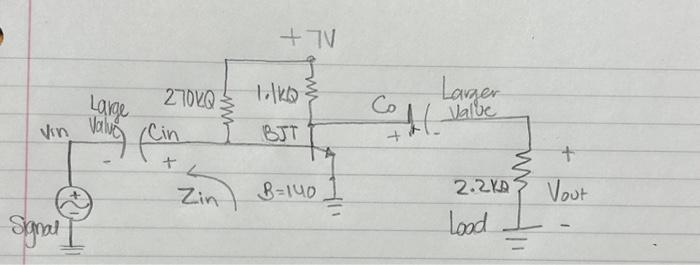 +7V
270KΩ
1.1KΩ
Large
Value
Vin
Cin
- +
BJT
Co
+ -
Larger
Value
Zin
B=140
2.2KΩ
+
Vout
-
Load
+
-
Signal